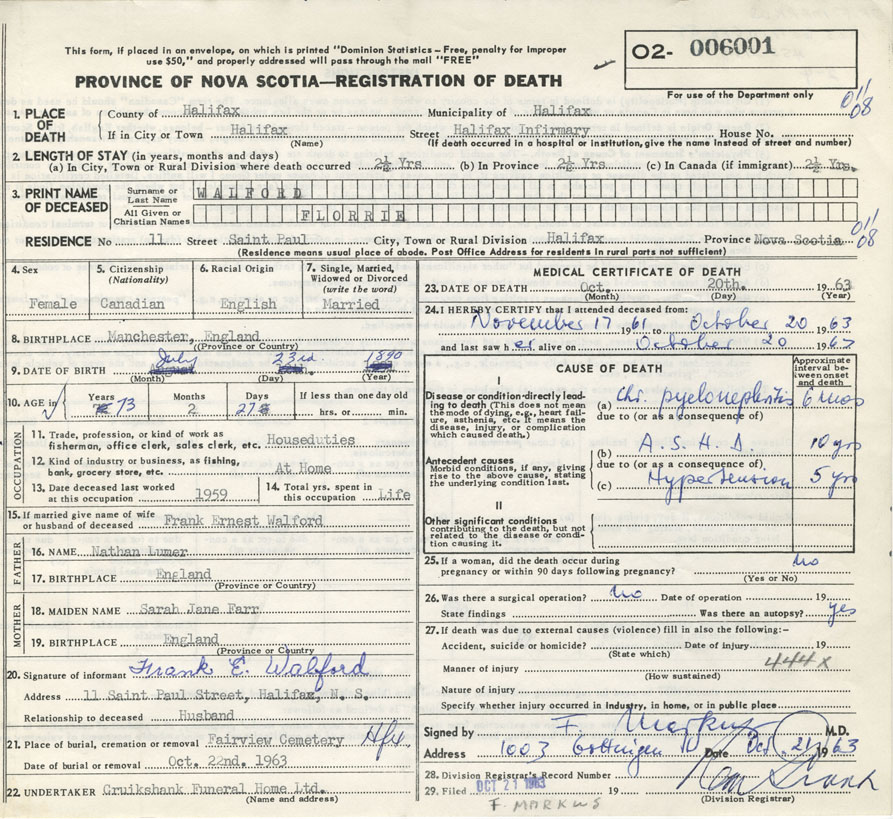 This form, if placed in an envelope, on which is printed "Dominion Statistics – Free, penalty for Improper
use $50," and properly addressed will pass through the mail "FREE"
O2- 006001
For use of the Department only
PROVINCE OF NOVA SCOTIA—REGISTRATION OF DEATH
011/08
1. PLACE OF DEATH
County of Halifax Municipality of Halifax
If in City or Town Halifax Street Halifax Infirmary House No.
(Name) (If death occurred in a hospital or institution, give the name instead of street and number)
2. LENGTH OF STAY (in years, months and days)
(a) In City, Town or Rural Division where death occurred 2½ Yrs (b) In Province 2½ Yrs (c) In Canada (if immigrant) 2½ Yrs.
3. PRINT NAME OF DECEASED
Surname or Last Name WALFORD
All Given or Christian Names FLORRIE
011/08
RESIDENCE No 11 Street Saint Paul City, Town or Rural Division Halifax Province Nova Scotia
(Residence means usual place of abode. Post Office Address for residents in rural parts not sufficient)
4. Sex
Female
5. Citizenship (Nationality)
Canadian
6. Racial Origin
English
7. Single, Married, Widowed or Divorced (write the word)
Married
8. BIRTHPLACE Manchester, England
(Province or Country)
9. DATE OF BIRTH July 23rd. 1890
(Month) (Day) (Year)
10. AGE in
Years 73
Months 2
Days 27
If less than one day old
hrs. or min.
OCCUPATION
11. Trade, profession or kind of work as
fisherman, office clerk, sales clerk, etc. Houseduties
12. Kind of industry or business, as fishing,
bank, grocery store, etc. At Home
13. Date deceased last worked
at this occupation 1959
14. Total yrs. spent in
this occupation Life
15. If married give name of wife
or husband of deceased Frank Ernest Walford
FATHER
16. NAME Nathan Lumer
17. BIRTHPLACE England
(Province or Country)
MOTHER
18. MAIDEN NAME Sarah Jane Farr
19. BIRTHPLACE England
(Province or Country)
20. Signature of informant Frank E. Walford
Address 11 Saint Paul Street, Halifax, N. S.
Relationship to deceased Husband
21. Place of burial, cremation or removal Fairview Cemetery Hfx.
Date of burial or removal Oct. 22nd. 1963
22. UNDERTAKER Cruikshank Funeral Home Ltd.
(Name and address)
MEDICAL CERTIFICATE OF DEATH
23. DATE OF DEATH Oct. 20th. 1963
(Month) (Day) (Year)
24. I HEREBY CERTIFY that I attended deceased from:
November 17 1961 to October 20 1963
and last saw her alive on October 20 1963
CAUSE OF DEATH
Approximate interval between onset and death
I
Disease or condition directly leading to death (This does not mean the mode of dying, e.g., heart failure, asthenia, etc. It means the disease, injury, or complication which caused death.)
(a) Chr. pyelonephritis 6 mos
due to (or as a consequence of)
(b) A.S.H.D. 10 yrs
due to (or as a consequence of)
Antecedent causes
Morbid conditions, if any, giving rise to the above cause, stating the underlying condition last.
(c) Hypertension 5 yrs
II
Other significant conditions
contributing to the death, but not related to the disease or condition causing it.
25. If a woman, did the death occur during
pregnancy or within 90 days following pregnancy? No
(Yes or No)
26. Was there a surgical operation? No Date of operation 19
State findings Was there an autopsy? yes
27. If death was due to external causes (violence) fill in also the following:–
Accident, suicide or homicide? Date of injury 19
(State which)
444x
Manner of injury
(How sustained)
Nature of injury
Specify whether injury occurred in industry, in home, or in public place
Signed by F. Markus M.D.
Address 1003 Gottingen Date Oct. 21 1963
28. Division Registrar's Record Number
29. Filed OCT 21 1963 19
(Division Registrar)
F. MARKUS